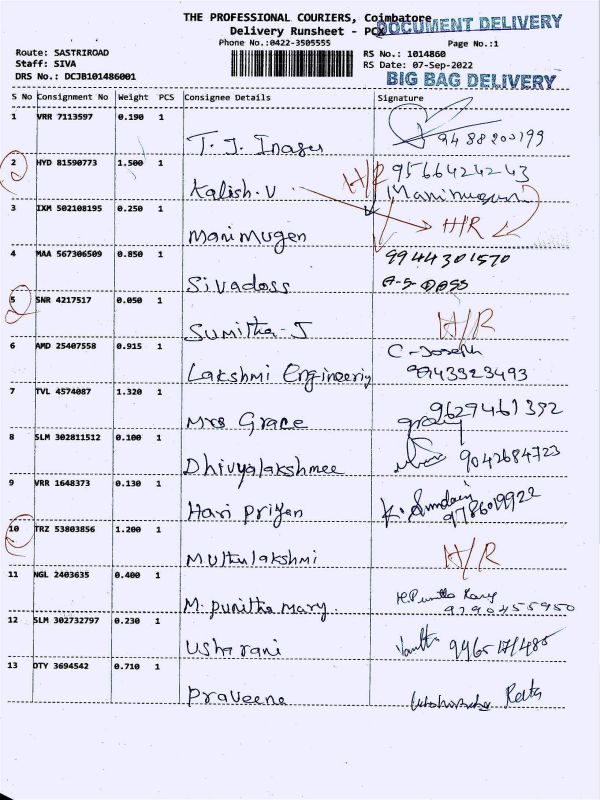 THE PROFESSIONAL COURIERS, Coimbatore
DOCUMENT DELIVERY
Delivery Runsheet - PCX
Phone No.:0422-3505555 Page No.:1
Route: SASTRIROAD RS No.: 1014860
Staff: SIVA RS Date: 07-Sep-2022
DRS No.: DCJB101486001 BIG BAG DELIVERY
S No Consignment No Weight PCS Consignee Details Signature
1 VRR 7113597 0.190 1
T. J. 9488200199
2 HYD 81590773 1.500 1 H/R 9566424243
Kalish.V Manimugen
3 IXM 502108195 0.250 1 H/R
Manimugen
4 MAA 567306509 0.850 1 9944301570
Sivadoss A-S-DASS
5 SNR 4217517 0.050 1 H/R
Sumitha-J
6 AMD 25407558 0.915 1 C-Joseph
Lakshmi Engineering 9943323493
7 TVL 4574087 1.320 1 9629461392
Mrs Grace
8 SLM 302811512 0.100 1
Dhivyalakshmee 9042684723
9 VRR 1648373 0.130 1
Hari Priyan 9786019922
10 TRZ 53803856 1.200 1 H/R
Muthulakshmi
11 NGL 2403635 0.400 1
M. Punitha Mary. 9790455950
12 SLM 302732797 0.230 1
Usha rani
13 OTY 3694542 0.710 1
Praveena